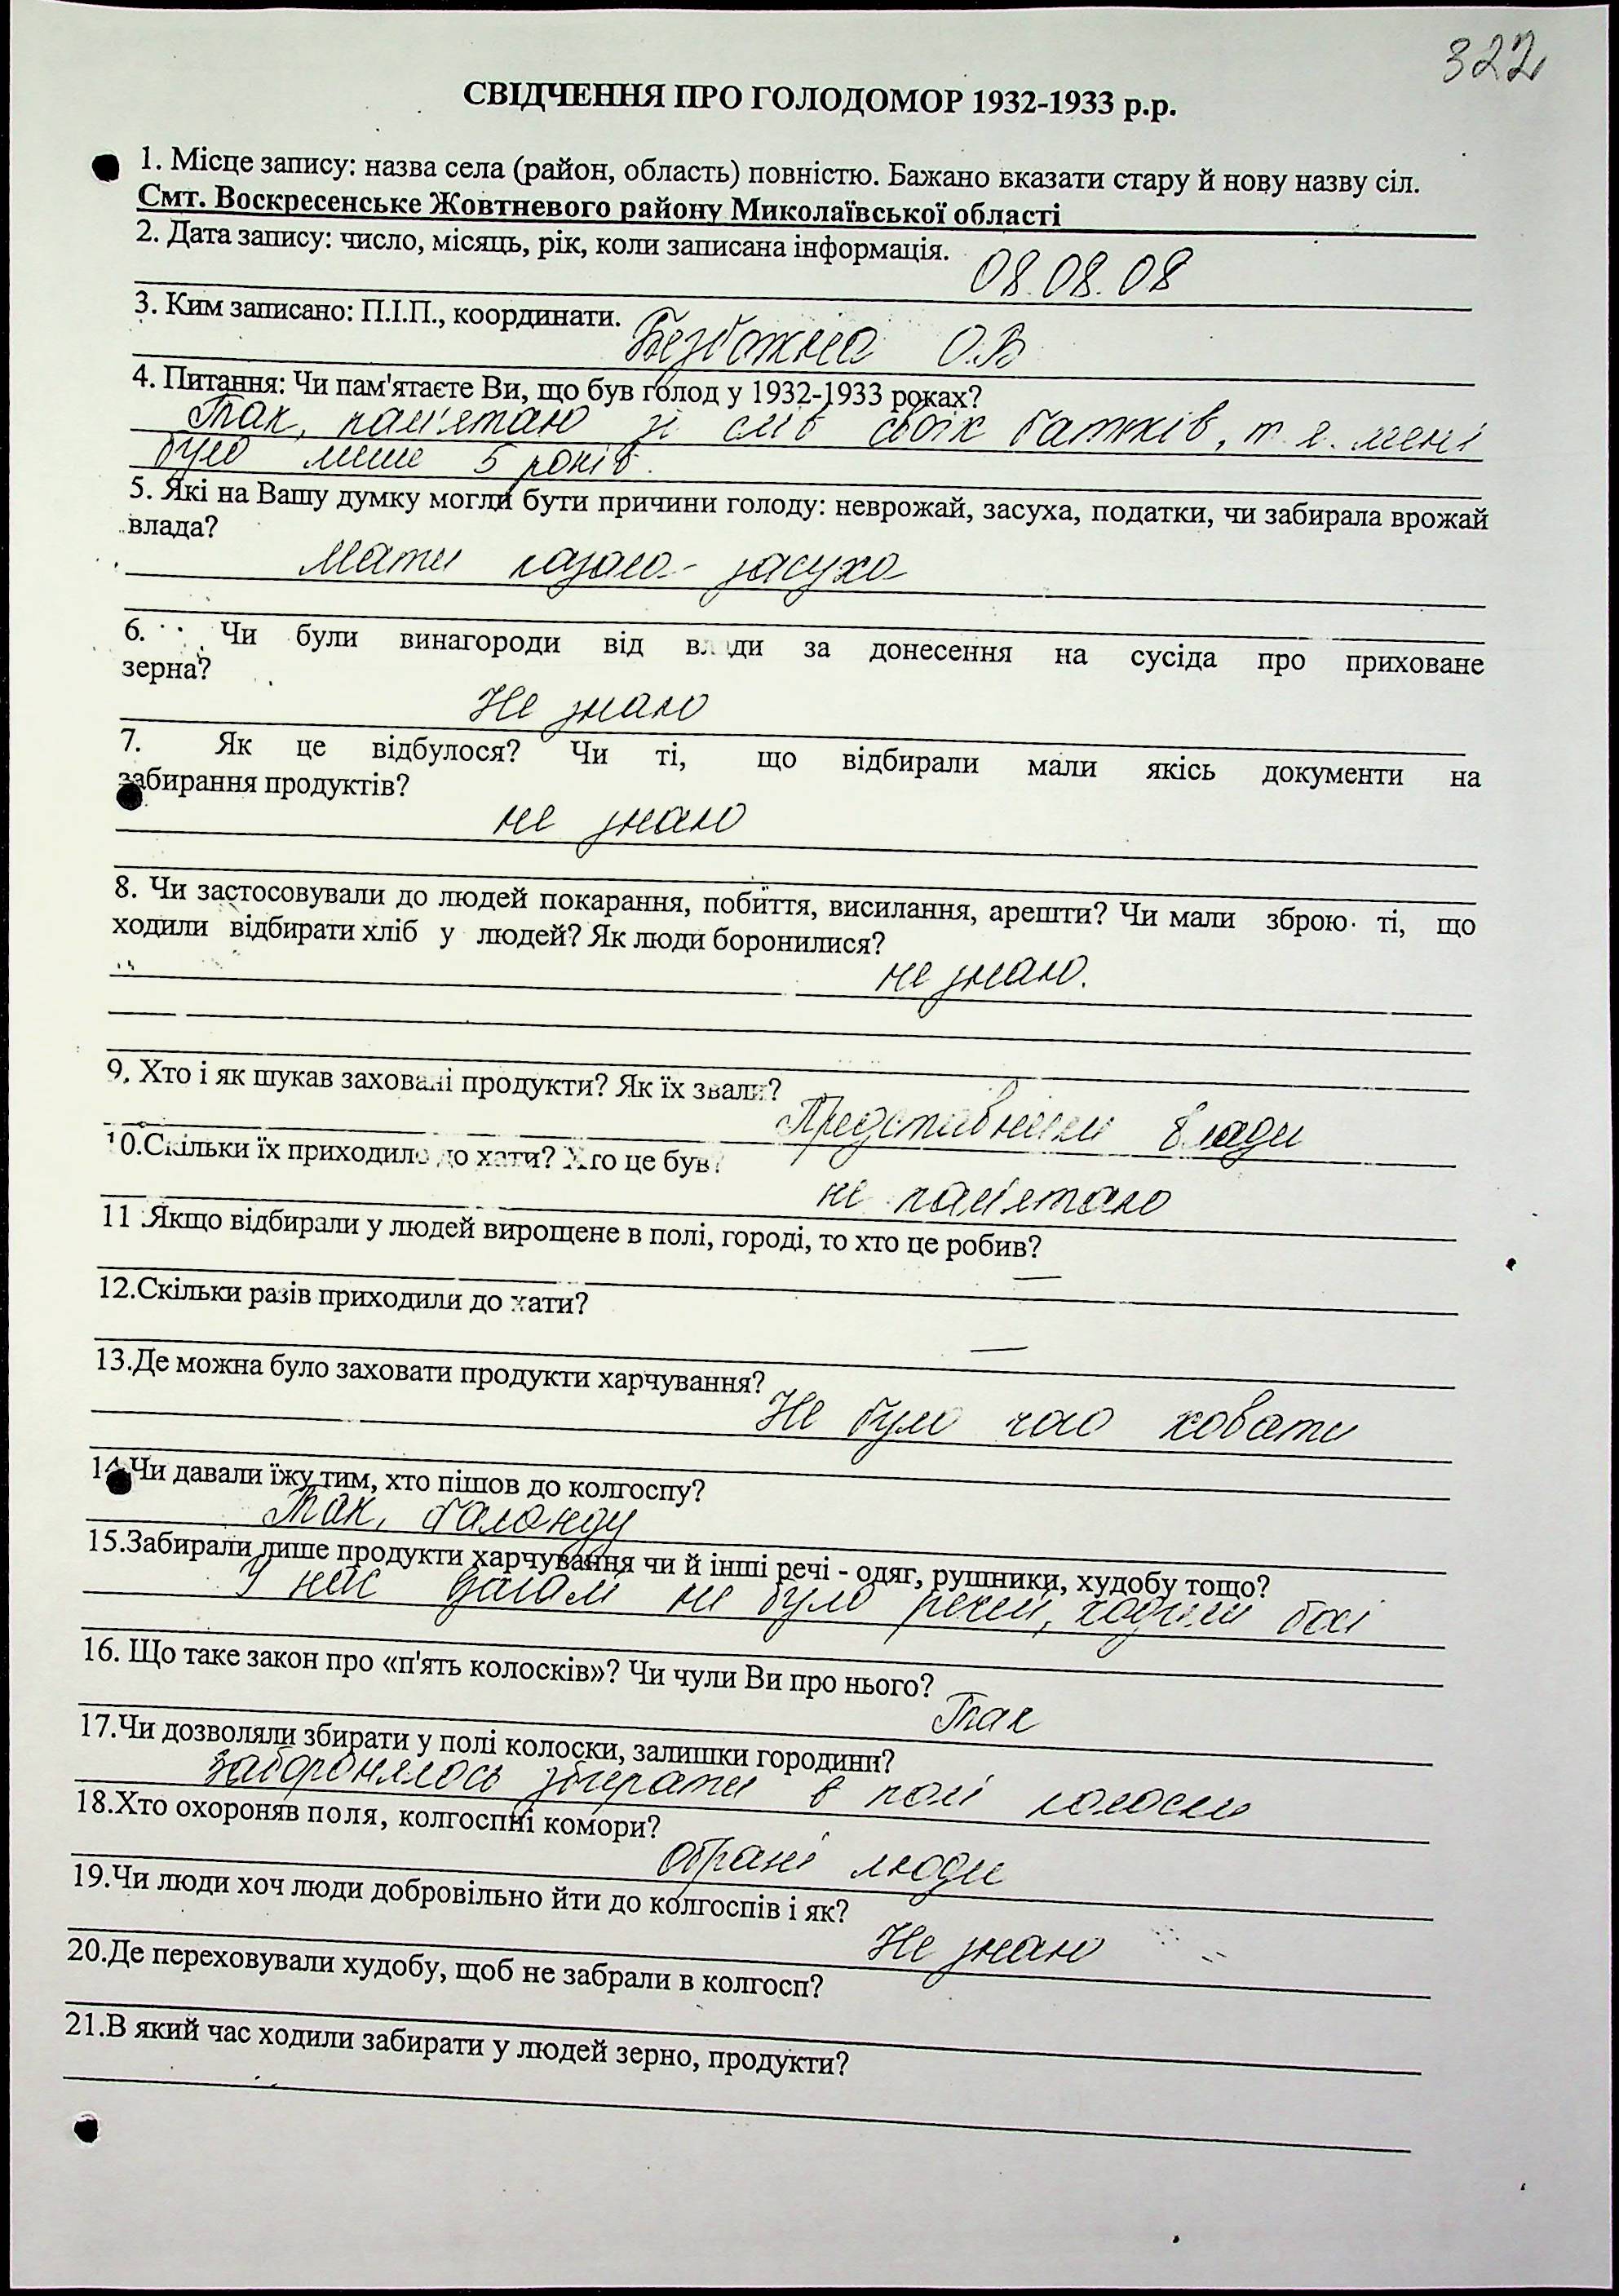 322
СВІДЧЕННЯ ПРО ГОЛОДОМОР 1932-1933 р.р.
1. Місце запису: назва села (район, область) повністю. Бажано вказати стару й нову назву сіл.
Смт. Воскресенське Жовтневого району Миколаївської області
2. Дата запису: число, місяць, рік, коли записана інформація.
08.08.08
3. Ким записано: П.І.П., координати.
Безбожна О.В
4. Питання: Чи пам'ятаєте Ви, що був голод у 1932-1933 роках?
Так, пам'ятаю зі слів своїх батьків, т.я. мені
було лише 5 років.
5. Які на Вашу думку могли бути причини голоду: неврожай, засуха, податки, чи забирала врожай
влада?
Мати казала - засуха
6. Чи були винагороди від влади за донесення на сусіда про приховане
зерна?
Не знаю
7. Як це відбулося? Чи ті, що відбирали мали якісь документи на
забирання продуктів?
не знаю
8. Чи застосовували до людей покарання, побиття, висилання, арешти? Чи мали зброю ті, що
ходили відбирати хліб у людей? Як люди боронилися?
не знаю.
9. Хто і як шукав заховані продукти? Як їх звали?
Представники влади
10.Скільки їх приходило до хати? Хто це був?
не пам'ятаю
11 .Якщо відбирали у людей вирощене в полі, городі, то хто це робив?
—
12.Скільки разів приходили до хати?
—
13.Де можна було заховати продукти харчування?
Не було чого ховати
14.Чи давали їжу тим, хто пішов до колгоспу?
Так, баланду
15.Забирали лише продукти харчування чи й інші речі - одяг, рушники, худобу тощо?
У нас взагалі не було речей, ходили босі
16. Що таке закон про «п'ять колосків»? Чи чули Ви про нього?
Так
17.Чи дозволяли збирати у полі колоски, залишки городини?
заборонялось збирати в полі колоски
18.Хто охороняв поля, колгоспні комори?
обрані люди
19.Чи люди хоч люди добровільно йти до колгоспів і як?
Не знаю
20.Де переховували худобу, щоб не забрали в колгосп?
21.В який час ходили забирати у людей зерно, продукти?